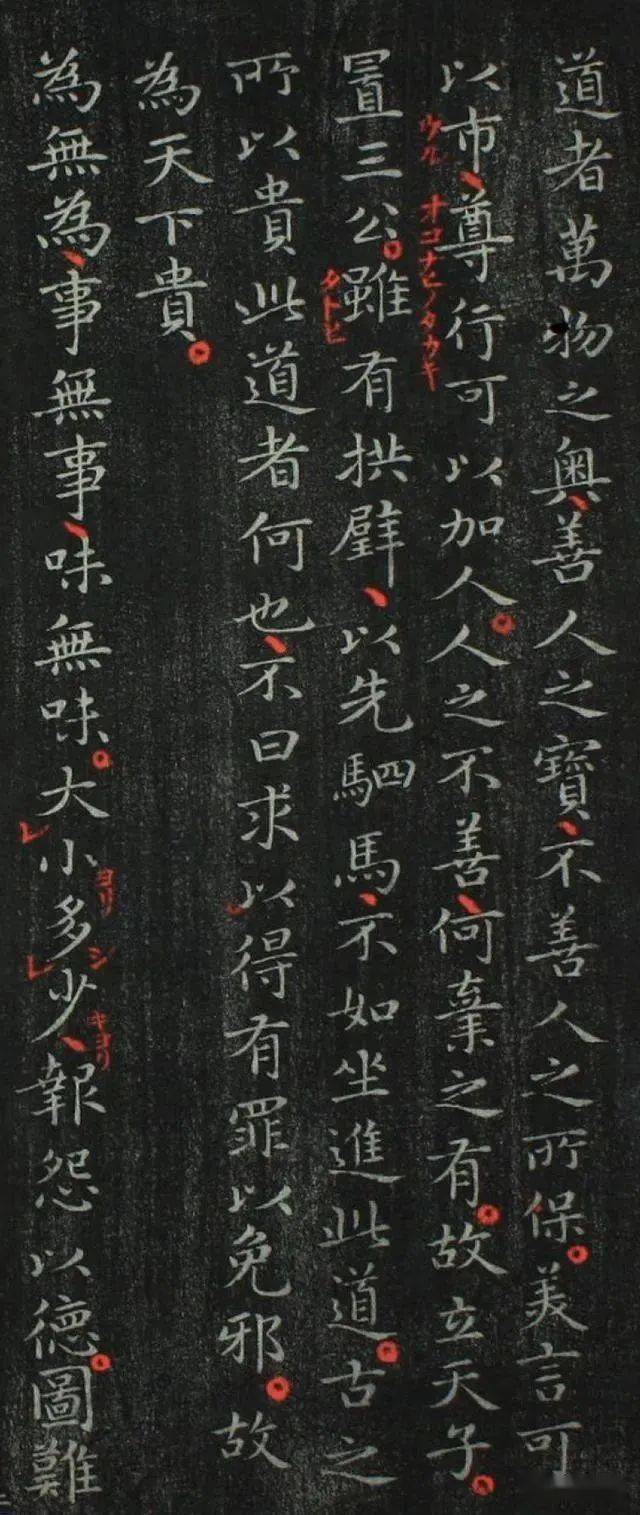 道者萬物之奧善人之寶不善人之所保美言可
以市尊行可以加人人之不善何棄之有故立天子
ウル
オコナヒノタカキ
置三公雖有拱璧以先駟馬不如坐進此道古之
タトヒ
所以貴此道者何也不曰求以得有罪以免邪故
為天下貴
為無為事無事味無味大小多少報怨以德圖難
レ
ヨリ
レ
シ
キヨリ